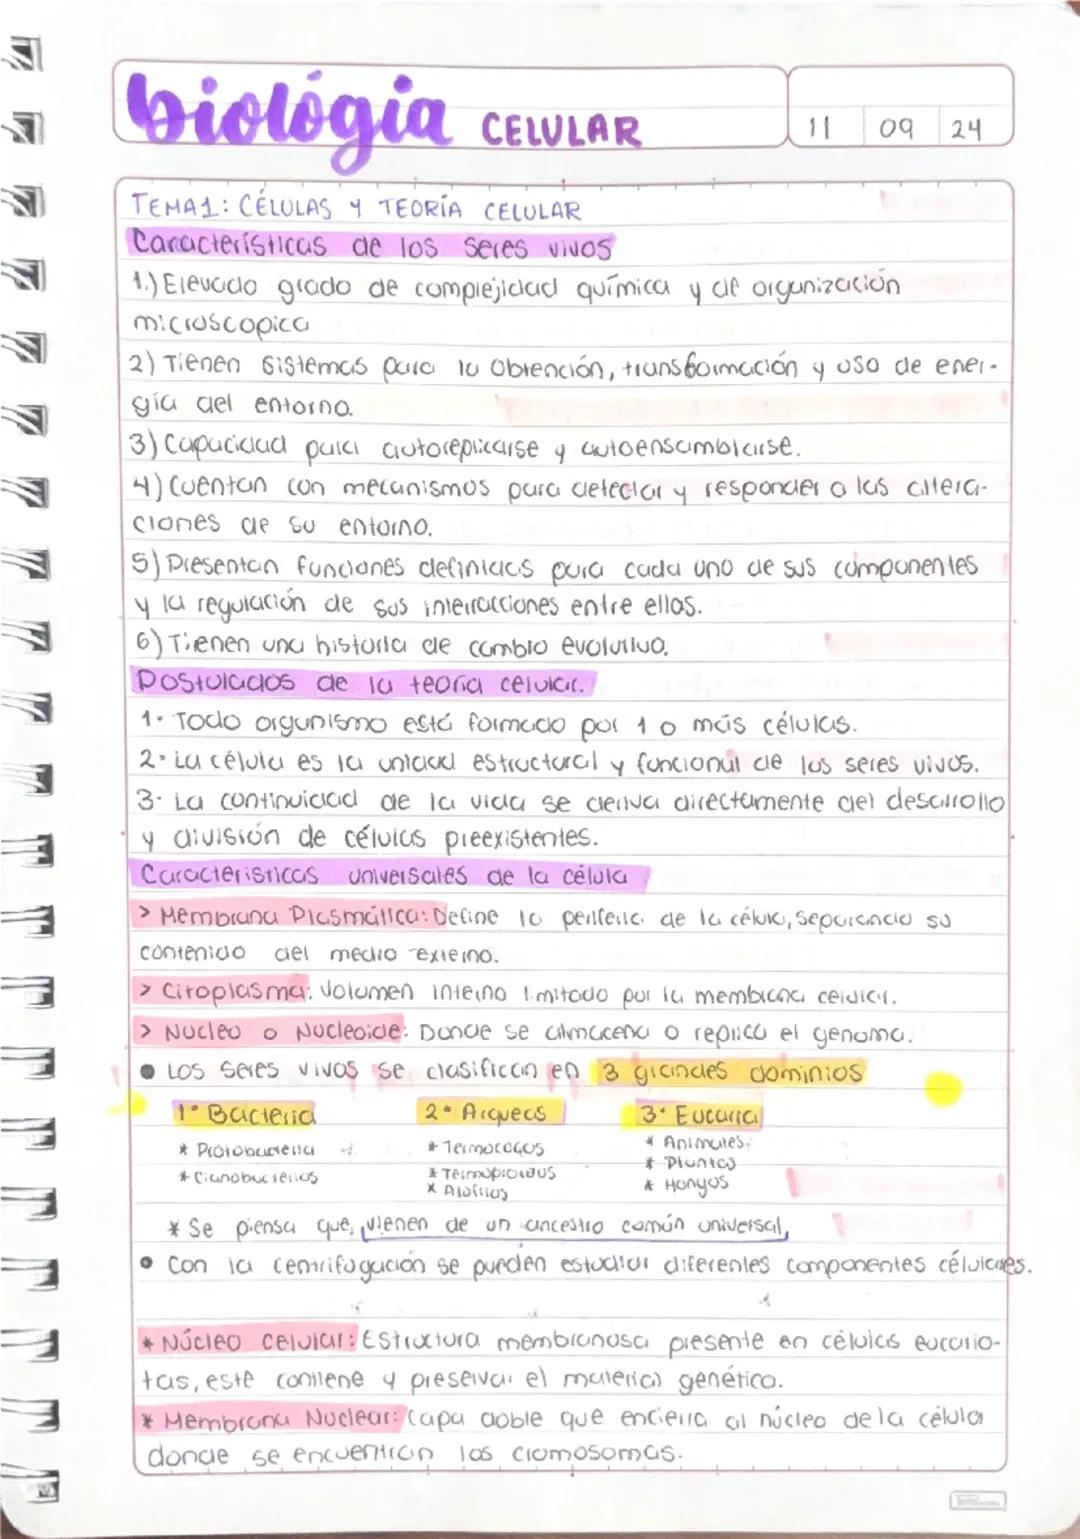 biológia CELULAR
11 09 24
TEMA1: CÉLULAS Y TEORÍA CELULAR
Características de los seres vivos
1.) Elevado grado de complejidad química y de organización
microscopica
2) Tienen sistemas para la obtención, transformación y uso de ener-
gía del entorno.
3) Capacidad para autoreplicarse y autoensamblarse.
4) Cuentan con mecanismos para detectar y responder a las altera-
ciones de su entorno.
5) Presentan funciones definidas para cada uno de sus componentes
y la regulación de sus interracciones entre ellos.
6) Tienen una historia de cambio evolutivo.
Postulados de la teoría celular.
1• Todo organismo está formado por 1 o más células.
2• La célula es la unidad estructural y funcional de los seres vivos.
3• La continuidad de la vida se deriva directamente del desarrollo
y división de células preexistentes.
Caracteristicas universales de la célula
> Membrana Plasmática: Define la periferia de la célula, separando su
contenido del medio externo.
> Citoplasma: Volumen interno limitado por la membrana celular.
> Nucleo o Nucleoide: Donde se almacena o replica el genoma.
● Los seres vivos se clasifican en 3 grandes dominios
1• Bacteria 2• Arqueas 3• Eucarria
* Protobacteria * Termococos * Animales
* Cianobacterias * Plantas
* Hongos
* Se piensa que, vienen de un ancestro común universal,
● Con la centrifugación se pueden estudiar diferentes componentes célulares.
* Núcleo celular: Estructura membranosa presente en células eucario-
tas, este contiene y preserva el material genético.
* Membrana Nuclear: Capa doble que encierra al núcleo de la célula
donde se encuentran los cromosomas.